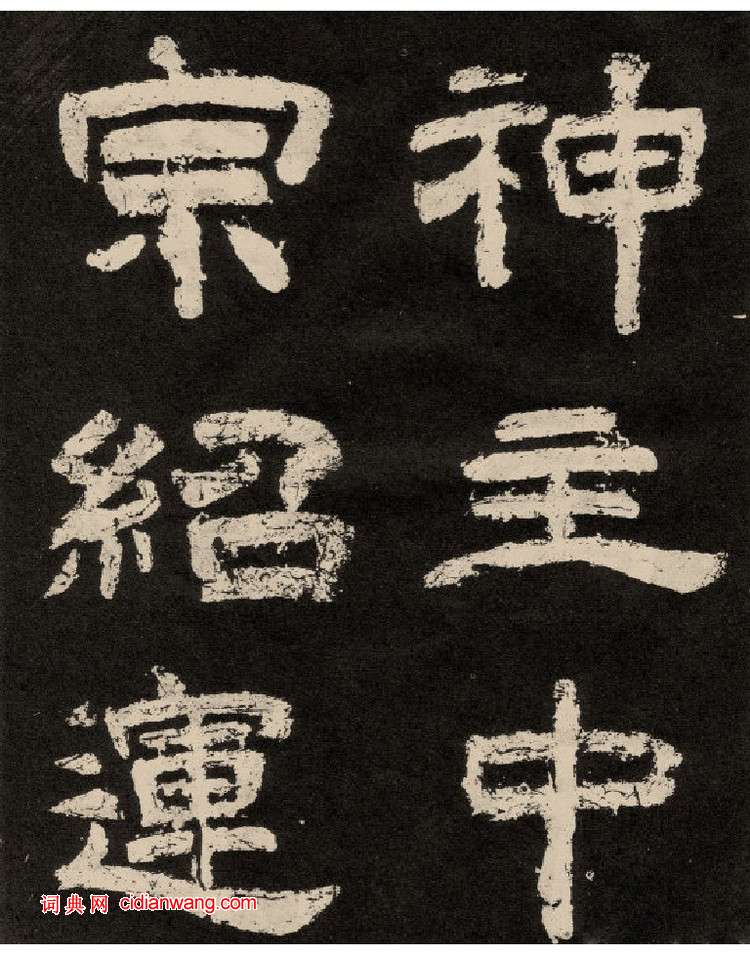 神主中
宗紹運
词典网 cidianwang.com